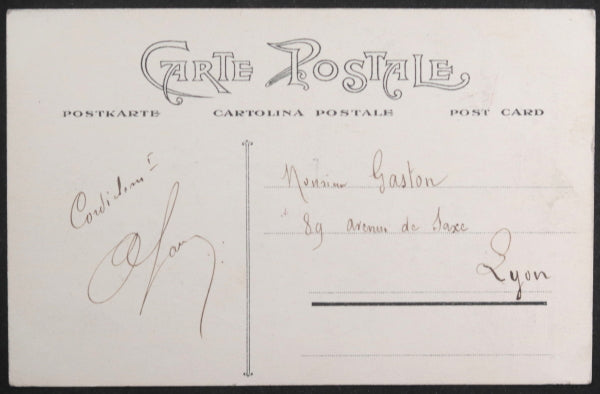 CARTE POSTALE
POSTKARTE CARTOLINA POSTALE POST CARD
Cordialemt
Monsieur Gaston
89 avenue de Saxe
Lyon